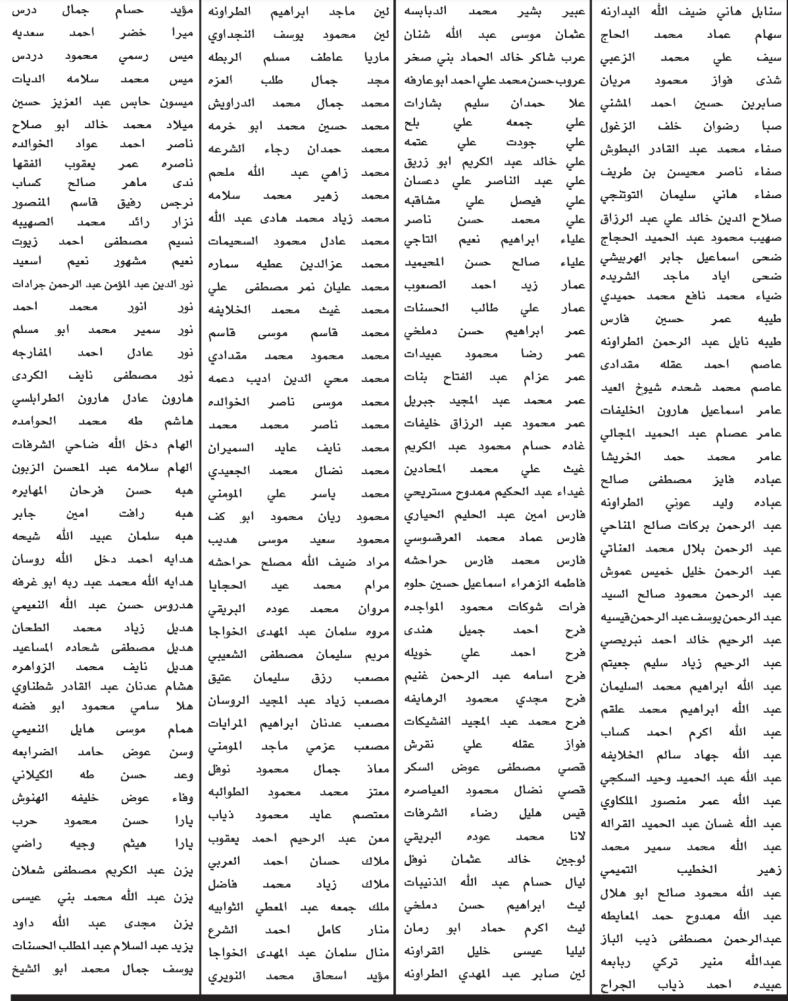 سنابل هاني ضيف الله البدارنه
سهام عماد محمد الحاج
سيف علي محمد الزعبي
شذى فواز محمود مريان
صابرين حسين احمد المشني
صبا رضوان خلف الزغول
صفاء محمد عبد القادر البطوش
صفاء ناصر محيسن بن طريف
صفاء هاني سليمان التوتنجي
صلاح الدين خالد علي عبد الرزاق
صهيب محمود عبد الحميد الحجاج
ضحى اسماعيل جابر الهربيشي
ضحى اياد ماجد الشريده
ضياء محمد نافع محمد حميدي
طيبه عمر حسين فارس
طيبه نايل عبد الرحمن الطراونه
عاصم احمد عقله مقدادى
عاصم محمد شحده شيوخ العيد
عامر اسماعيل هارون الخليفات
عامر عصام عبد الحميد المجالي
عامر محمد حمد الخريشا
عباده فايز مصطفى صالح
عباده وليد عوني الطراونه
عبد الرحمن بركات صالح المناحي
عبد الرحمن بلال محمد العناتي
عبد الرحمن خليل خميس عموش
عبد الرحمن محمود صالح السيد
عبد الرحمن يوسف عبد الرحمن قيسيه
عبد الرحيم خالد احمد نبريصي
عبد الرحيم زياد سليم جعيتم
عبد الله ابراهيم محمد السليمان
عبد الله ابراهيم محمد علقم
عبد الله اكرم احمد كساب
عبد الله جهاد سالم الخلايفه
عبد الله عبد الحميد وحيد السكجي
عبد الله عمر منصور الملكاوي
عبد الله غسان عبد الحميد القراله
عبد الله محمد سمير محمد
زهير الخطيب التميمي
عبد الله محمود صالح ابو هلال
عبد الله ممدوح حمد المعايطه
عبدالرحمن مصطفى ذيب الباز
عبدالله منير تركي ربابعه
عبيده احمد ذياب الجراح
عبير بشير محمد الدبابسه
عثمان موسى عبد الله شنان
عرب شاكر خالد الحماد بني صخر
عروب حسن محمد علي احمد ابو عارفه
علا حمدان سليم بشارات
علي جمعه علي بلح
علي جودت علي عتمه
علي خالد عبد الكريم ابو زريق
علي عبد الناصر علي دعسان
علي فيصل علي مشاقبه
علي محمد حسن ناصر
علياء ابراهيم نعيم التاجي
علياء صالح حسن المحيميد
عمار زيد احمد الصعوب
عمار علي طالب الحسنات
عمر ابراهيم حسن دملخي
عمر رضا محمود عبيدات
عمر عزام عبد الفتاح بنات
عمر محمد عبد المجيد جبريل
عمر محمود عبد الرزاق خليفات
غاده حسام محمود عبد الكريم
غيث علي محمد المحادين
غيداء عبد الحكيم ممدوح مستريحي
فارس امين عبد الحليم الحياري
فارس عماد محمد العرقسوسي
فارس محمد فارس حراحشه
فاطمه الزهراء اسماعيل حسين حلوه
فرات شوكات محمود المواجده
فرح احمد جميل هندى
فرح احمد علي خويله
فرح اسامه عبد الرحمن غنيم
فرح مجدي محمود الرهايفه
فرح محمد عبد المجيد الفشيكات
فواز عقله علي نقرش
قصي مصطفى عوض السكر
قصي نضال محمود العياصره
قيس هليل رضاء الشرفات
لانا محمد عوده البريقي
لوجين خالد عثمان نوفل
ليال حسام عبد الله الذنيبات
ليث ابراهيم حسن دملخي
ليث اكرم حماد ابو رمان
ليليا عيسى خليل القراونه
لين صابر عبد المهدي الطراونه
لين ماجد ابراهيم الطراونه
لين محمود يوسف النجداوي
ماريا عاطف مسلم الربطه
مجد جمال طلب العزه
محمد جمال محمد الدراويش
محمد حسين محمد ابو خرمه
محمد حمدان رجاء الشرعه
محمد زاهي عبد الله ملحم
محمد زهير محمد سلامه
محمد زياد محمد هادى عبد الله
محمد عادل محمود السحيمات
محمد عزالدين عطيه سماره
محمد عليان نمر مصطفى علي
محمد غيث محمد الخلايفه
محمد قاسم موسى قاسم
محمد محمود محمد مقدادي
محمد محي الدين اديب دعمه
محمد موسى ناصر الخوالده
محمد ناصر محمد محمد
محمد نايف عايد السميران
محمد نضال محمد الجعيدي
محمد ياسر علي المومني
محمود ريان محمود ابو كف
محمود سعيد موسى هديب
مراد ضيف الله مصلح حراحشه
مرام محمد عيد الحجايا
مروان محمد عوده البريقي
مروه سلمان عبد المهدى الخواجا
مريم سليمان مصطفى الشعيبي
مصعب رزق سليمان عتيق
مصعب زياد عبد المجيد الروسان
مصعب عدنان ابراهيم المرايات
مصعب عزمي ماجد المومني
معاذ جمال محمود نوفل
معتز محمد محمود الطوالبه
معتصم عايد محمود ذياب
معن عبد الرحيم احمد يعقوب
ملاك حسان احمد العربي
ملاك زياد محمد فاضل
ملك جمعه عبد المعطي الثوابيه
منار كامل احمد الشرع
منال سلمان عبد المهدى الخواجا
مؤيد اسحاق محمد النويري
مؤيد حسام جمال درس
ميرا خضر احمد سعديه
ميس رسمي محمود دردس
ميس محمد سلامه الديات
ميسون حابس عبد العزيز حسين
ميلاد محمد خالد ابو صلاح
ناصر احمد عواد الخوالده
ناصره عمر يعقوب الفقها
ندى ماهر صالح كساب
نرجس رفيق قاسم المنصور
نزار رائد محمد الصهيبه
نسيم مصطفى احمد زيوت
نعيم مشهور نعيم اسعيد
نور الدين عبد المؤمن عبد الرحمن جرادات
نور انور محمد احمد
نور سمير محمد ابو مسلم
نور عادل احمد المفارجه
نور مصطفى نايف الكردى
هارون عادل هارون الطرابلسي
هاشم طه محمد الحوامده
الهام دخل الله ضاحي الشرفات
الهام سلامه عبد المحسن الزبون
هبه حسن فرحان المهايره
هبه رافت امين جابر
هبه سلمان عبيد الله شيحه
هدايه احمد دخل الله روسان
هدايه الله محمد عبد ربه ابو غرفه
هدروس حسن عبد الله النعيمي
هديل زياد محمد الطحان
هديل مصطفى شحاده المساعيد
هديل نايف محمد الزواهره
هشام عدنان عبد القادر شطناوي
هلا سامي محمود ابو فضه
همام موسى هايل النعيمي
وسن عوض حامد الضرابعه
وعد حسن طه الكيلاني
وفاء عوض خليفه الهنوش
يارا حسن محمود حرب
يارا هيثم وجيه راضي
يزن عبد الكريم مصطفى شعلان
يزن عبد الله محمد بني عيسى
يزن مجدى عبد الله داود
يزيد عبد السلام عبد المطلب الحسنات
يوسف جمال محمد ابو الشيخ